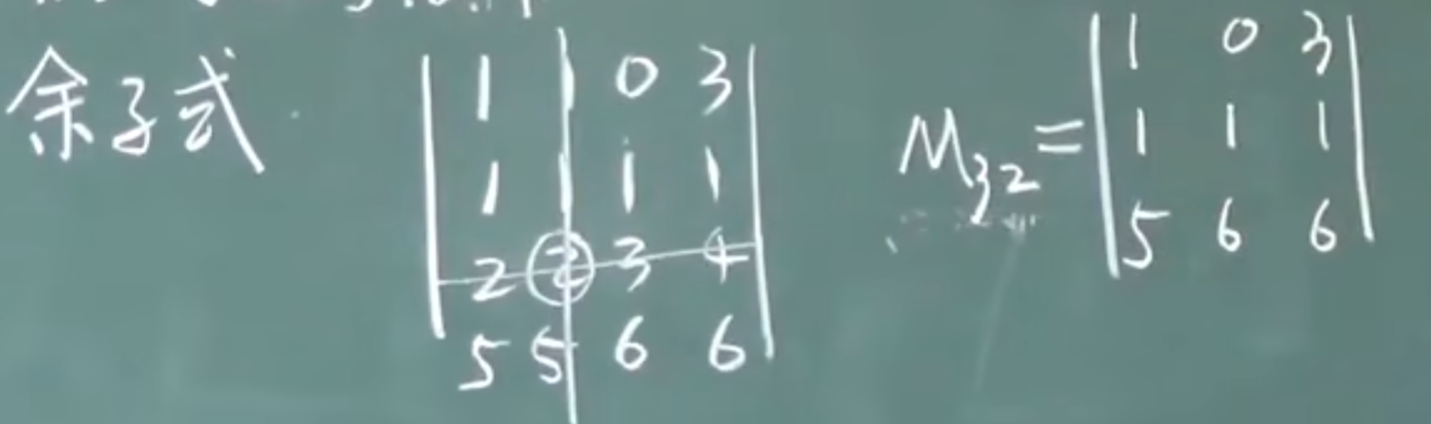 余子式
1 1 0 3
1 1 1 1
2 2 3 4
5 5 6 6
M32 =
1 0 3
1 1 1
5 6 6